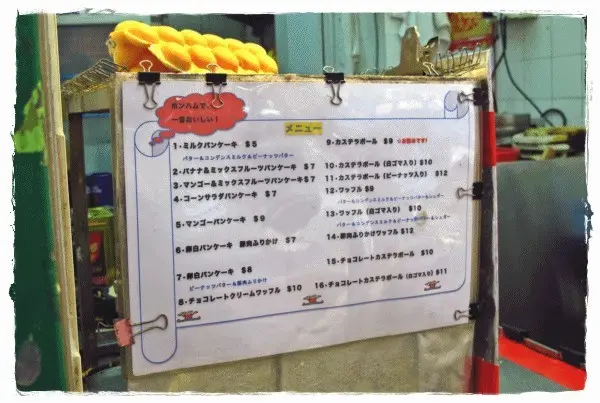 ホンハムで、
一番おいしい！
メニュー
1・ミルクパンケーキ $5
バター&コンデンスミルク&ピーナッツバター
2・バナナ&ミックスフルーツパンケーキ $7
3・マンゴー&ミックスフルーツパンケーキ$7
4・コーンサラダパンケーキ $7
5・マンゴーパンケーキ $9
6・卵白パンケーキ 豚肉ふりかけ $7
7・卵白パンケーキ $8
ピーナッツバター&豚肉ふりかけ
8・チョコレートクリームワッフル $10
9・カステラボール $9 ☆お勧めです!
10・カステラボール (白ゴマ入り) $10
11・カステラボール (ピーナッツ入り) $12
12・ワッフル $9
バター&コンデンスミルク&ピーナッツバター&シュガー
13・ワッフル (白ゴマ入り) $10
バター&コンデンスミルク&ピーナッツバター&シュガー
14・豚肉ふりかけワッフル $12
15・チョコレートカステラボール $10
16・チョコレートカステラボール (白ゴマ入り) $11